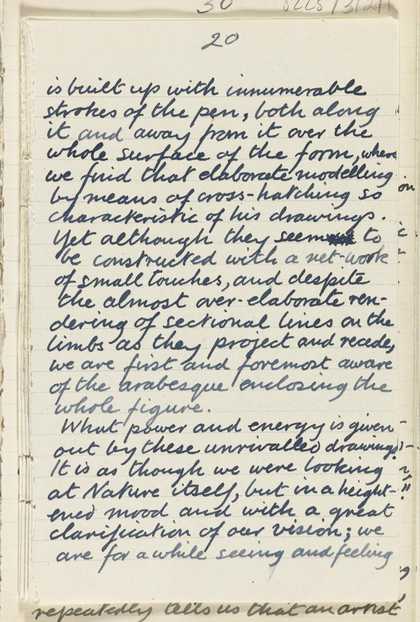 20
is built up with innumerable
strokes of the pen, both along
it and away from it over the
whole surface of the form, where
we find that elaborate modelling
by means of cross-hatching so
characteristic of his drawings.
Yet although they seem to
be constructed with a net-work
of small touches, and despite
the almost over-elaborate ren-
dering of sectional lines on the
limbs as they project and recede,
we are first and foremost aware
of the arabesque enclosing the
whole figure.
What power and energy is given
out by these unrivalled drawings!
It is as though we were looking
at Nature itself, but in a height-
ened mood and with a great
clarification of our vision; we
are for a while seeing and feeling
repeatedly tells us that an artist